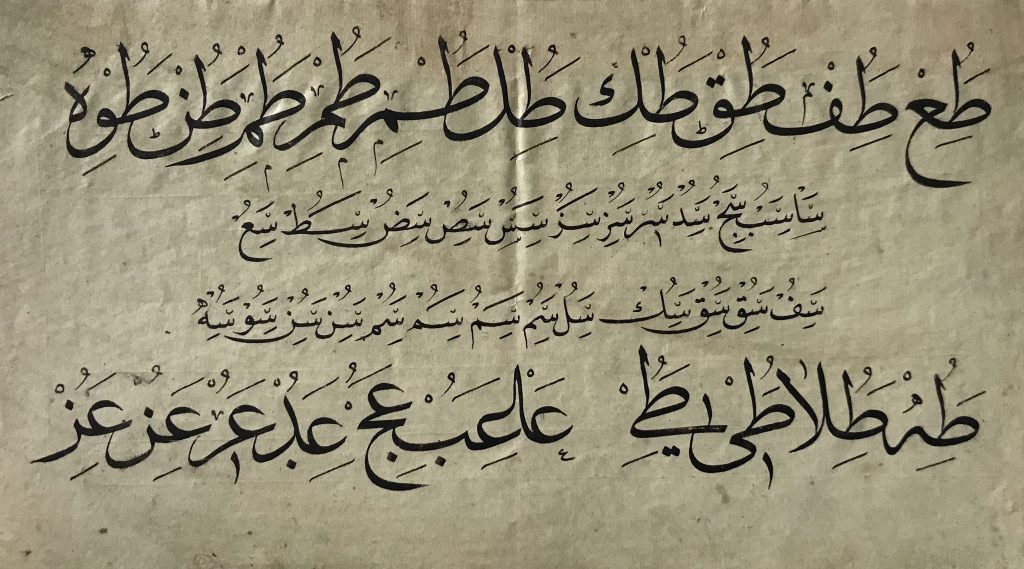 طع طف طق طك طل طم طم طم طن طوه
سا سب سج سد سر سر سر سس سص سص سط سع
سف سق سق سك سل سم سم سم سم سن سن سو سه
طه طلا طى طے عا عب عج عد عر عر عر